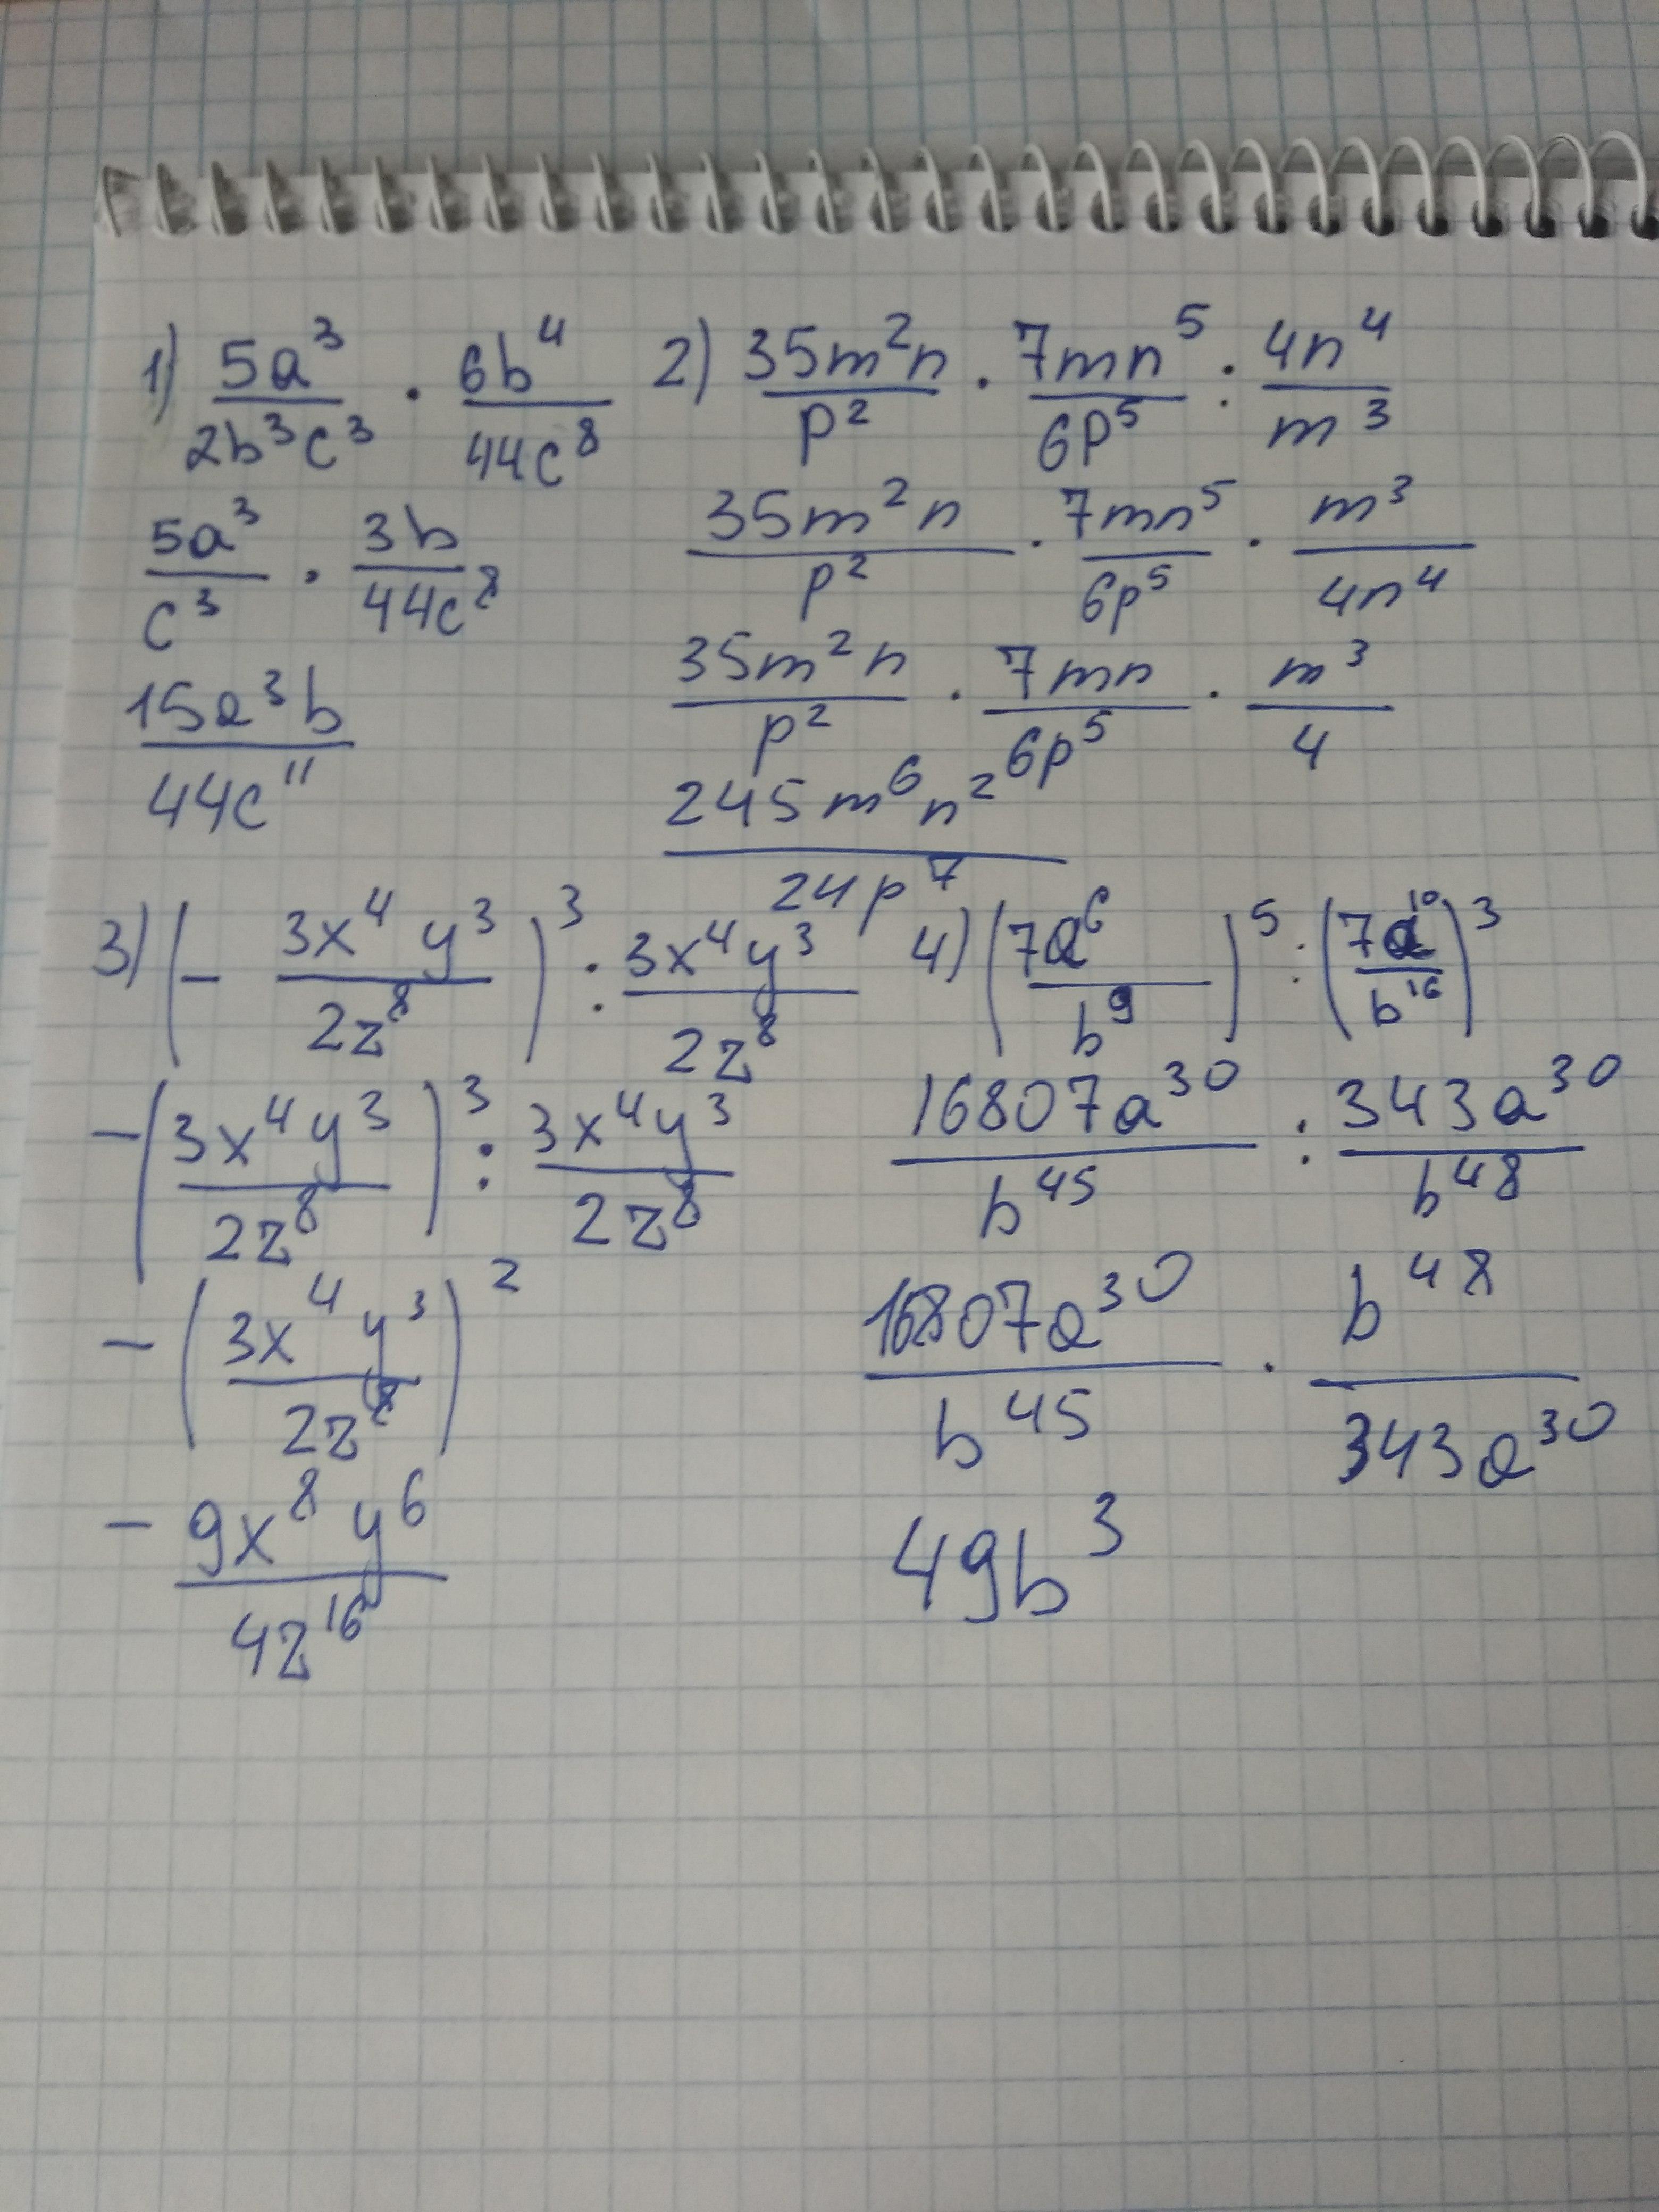 1) 5a³/2b³c³ · 6b⁴/44c⁸
5a³/c³ · 3b/44c⁸
15a³b/44c¹¹
2) 35m²n/p² · 7mn⁵/6p⁵ : 4n⁴/m³
35m²n/p² · 7mn⁵/6p⁵ · m³/4n⁴
35m²n/p² · 7mn/6p⁵ · m³/4
245m⁶n²/24p⁷
3) (- 3x⁴y³/2z⁸)³ : 3x⁴y³/2z⁸
-(3x⁴y³/2z⁸)³ : 3x⁴y³/2z⁸
-(3x⁴y³/2z⁸)²
- 9x⁸y⁶/4z¹⁶
4) (7a⁶/b⁹)⁵ : (7a¹⁰/b¹⁶)³
16807a³⁰/b⁴⁵ : 343a³⁰/b⁴⁸
16807a³⁰/b⁴⁵ · b⁴⁸/343a³⁰
49b³